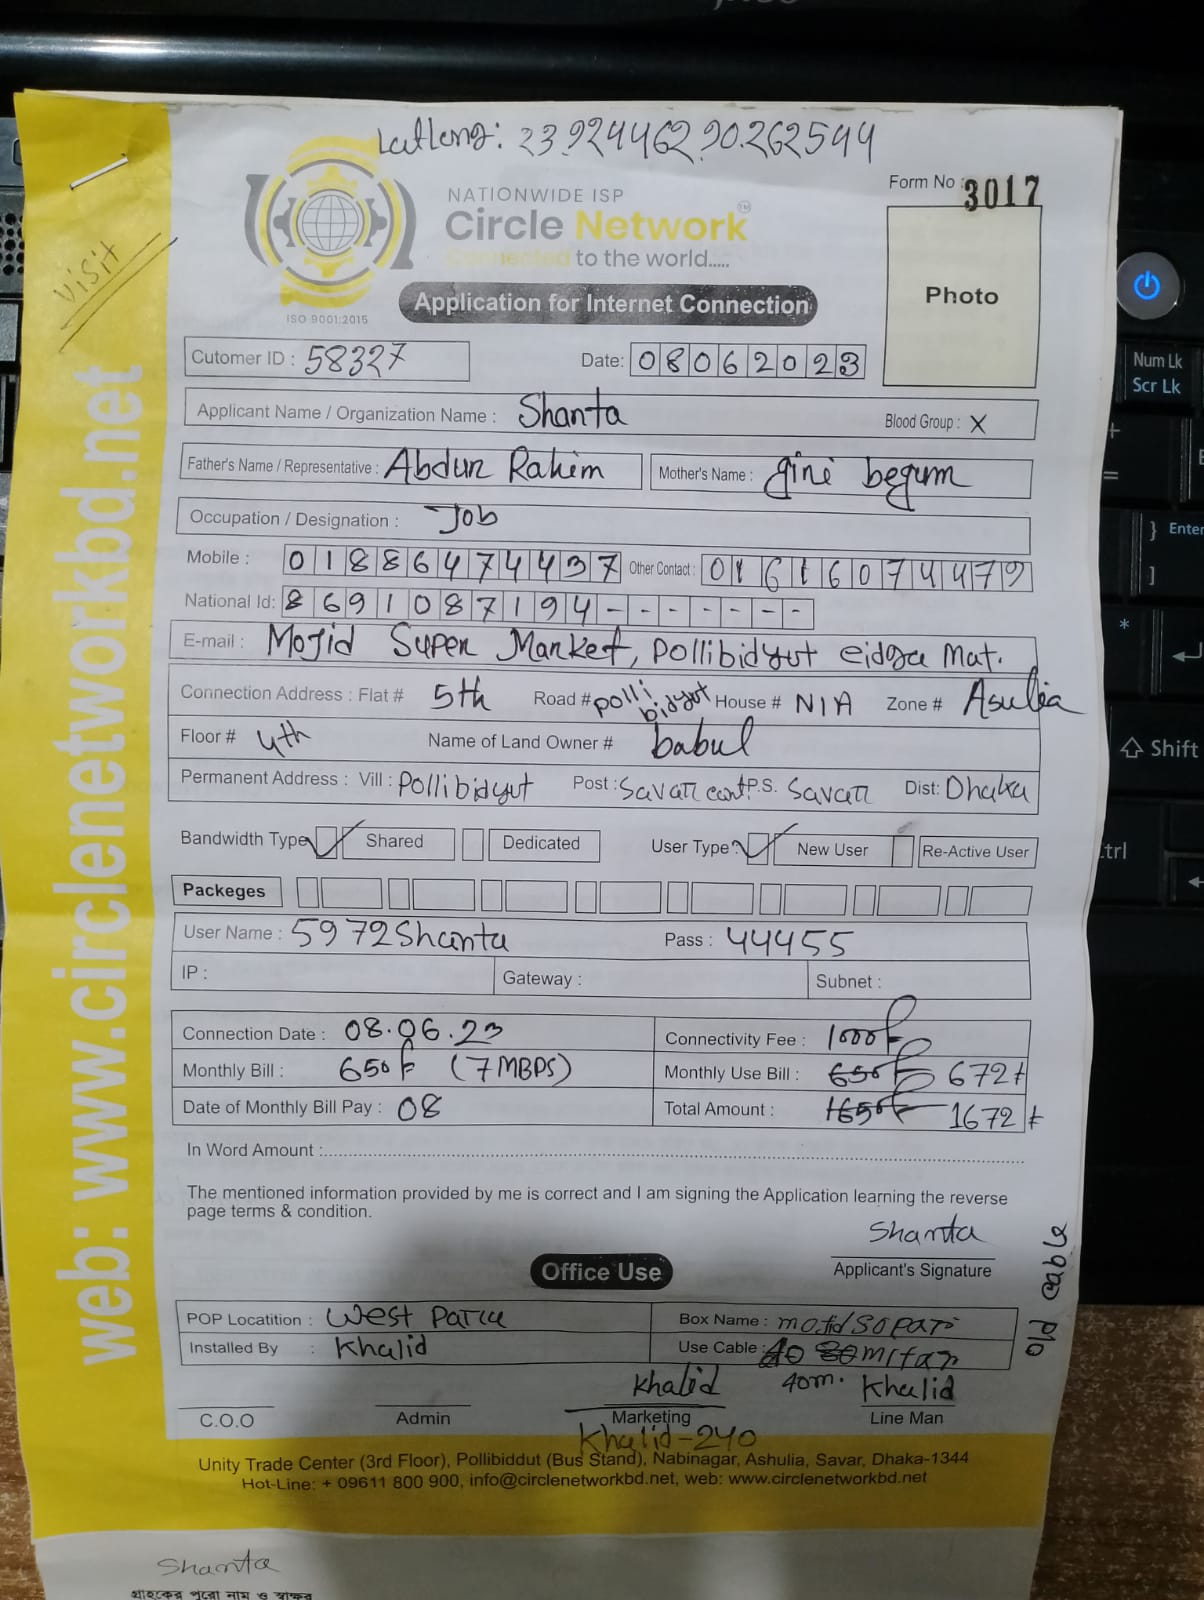 Latlong: 23.924462,90.262544
Form No : 3017
NATIONWIDE ISP
Circle Network™
Connected to the world.....
ISO 9001:2015
Application for Internet Connection
Photo
visit
Cutomer ID : 58327 Date: 08062023
Applicant Name / Organization Name : Shanta Blood Group : X
Father's Name / Representative : Abdur Rahim Mother's Name : gini begum
Occupation / Designation : Job
Mobile : 01886474437 Other Contact : 01616074479
National Id: 8691087194-------
E-mail : Mojid Super Market, Pollibidyut eidga Mat.
Connection Address : Flat # 5th Road # polli bidyut House # N/A Zone # Asulia
Floor # 4th Name of Land Owner # babul
Permanent Address : Vill : Pollibidyut Post : Savar cant P.S. Savar Dist: Dhaka
Bandwidth Type Shared Dedicated User Type New User Re-Active User
Packeges
User Name : 5972Shanta Pass : 44455
IP : Gateway : Subnet :
Connection Date : 08.06.23 Connectivity Fee : 1000
Monthly Bill : 650 (7 MBPS) Monthly Use Bill : 650 672
Date of Monthly Bill Pay : 08 Total Amount : 1650 1672
In Word Amount :
The mentioned information provided by me is correct and I am signing the Application learning the reverse
page terms & condition.
Shanta
Applicant's Signature
Office Use
POP Locatition : West Para Box Name : mojid Sopar
Installed By : Khalid Use Cable : 40 mitar
old cable
Khalid 40m. Khalid
C.O.O Admin Marketing Line Man
Khalid-240
Unity Trade Center (3rd Floor), Pollibiddut (Bus Stand), Nabinagar, Ashulia, Savar, Dhaka-1344
Hot-Line: + 09611 800 900, info@circlenetworkbd.net, web: www.circlenetworkbd.net
Shanta
গ্রাহকের পুরো নাম ও স্বাক্ষর
web: www.circlenetworkbd.net
Num Lk
Scr Lk
Enter
Shift
Ctrl